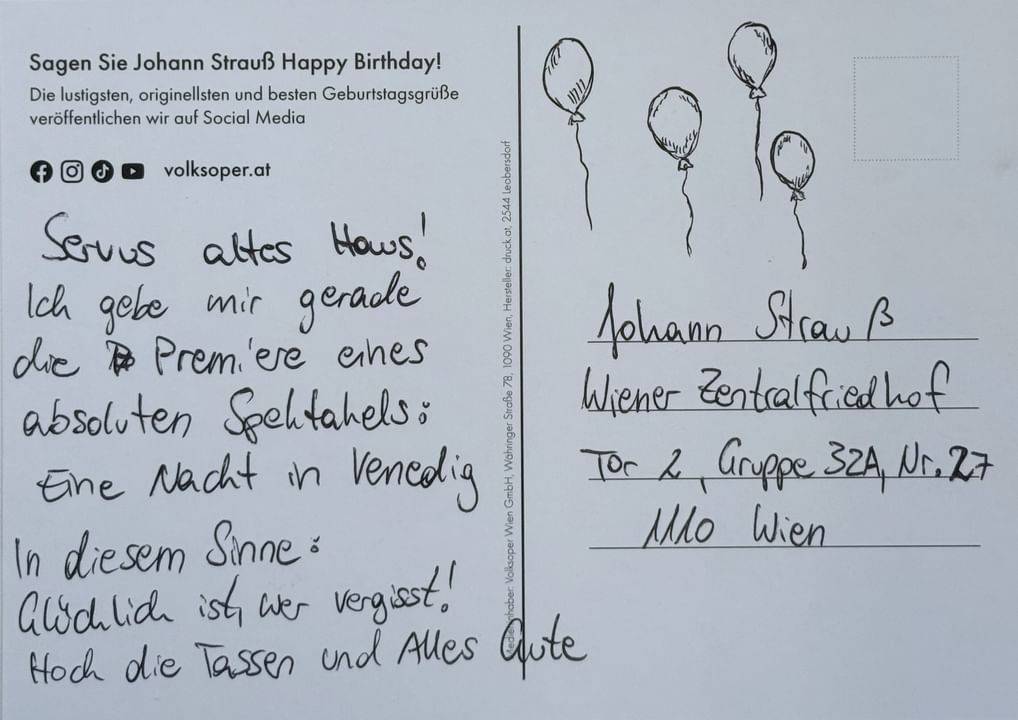 Sagen Sie Johann Strauß Happy Birthday!
Die lustigsten, originellsten und besten Geburtstagsgrüße
veröffentlichen wir auf Social Media
volksoper.at
Servus altes Haus!
Ich gebe mir gerade
die Premiere eines
absoluten Spektakels:
Eine Nacht in Venedig
In diesem Sinne:
Glücklich ist, wer vergisst!
Hoch die Tassen und Alles Gute
Medieninhaber: Volksoper Wien GmbH, Währinger Straße 78, 1090 Wien, Hersteller: druck.at, 2544 Leobersdorf
Johann Strauß
Wiener Zentralfriedhof
Tor 2, Gruppe 32A, Nr. 27
1110 Wien